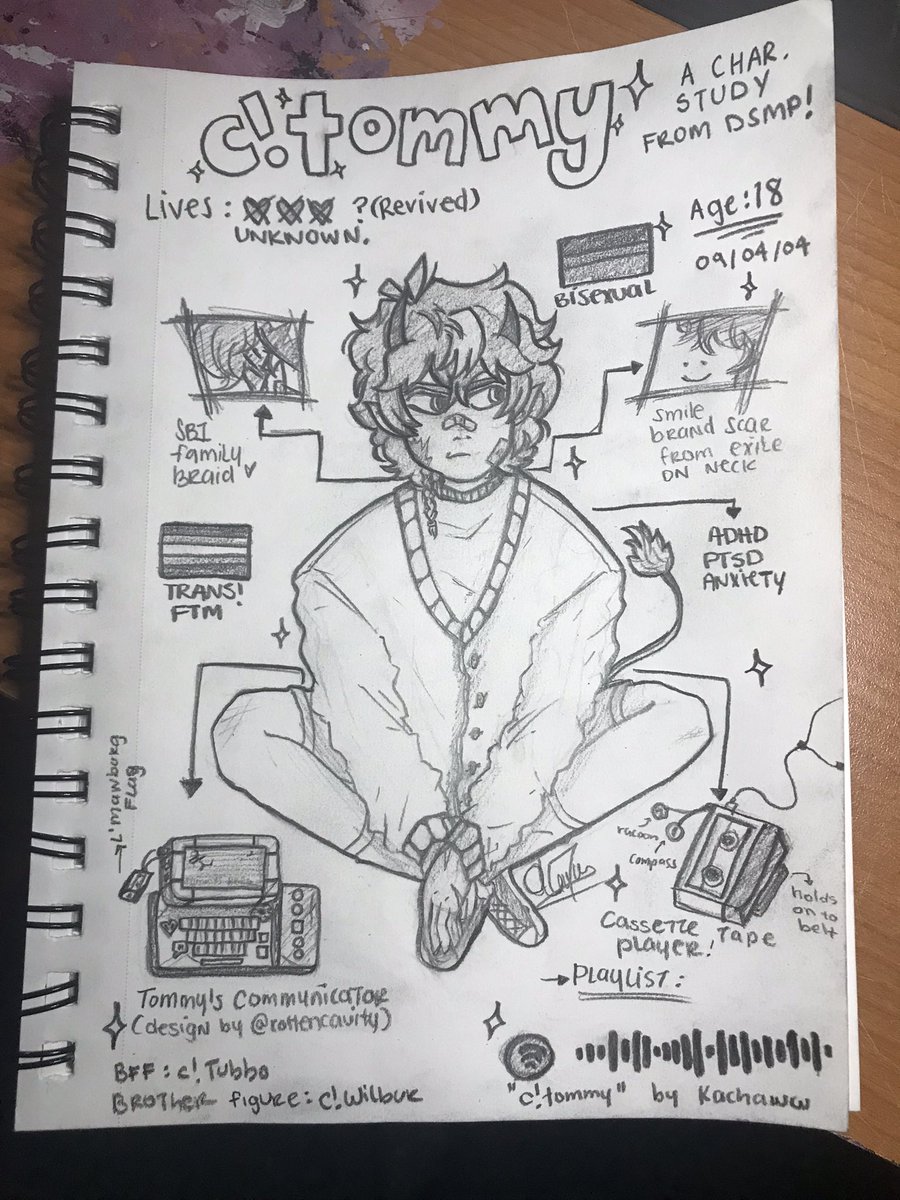 c!tommy
A CHAR.
STUDY
FROM DSMP!
Lives: ? (Revived)
UNKNOWN.
Age: 18
09/04/04
BISEXUAL
SBI
family
BRAID
smile
brand scar
from exile
ON NECK
ADHD
PTSD
ANXIETY
TRANS!
FTM
L'manburg
FLAG
racoon
compass
holds
on to
belt
Cassette TAPE
player!
→ PLAYLIST:
Tommy's Communicator
(design by @rottencavity)
BFF: c!Tubbo
BROTHER figure: c!Wilbur
"c!tommy" by Kachaww